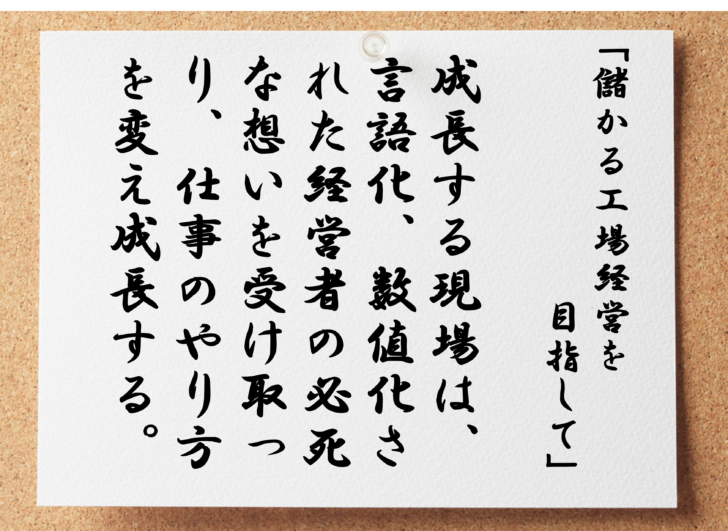 「儲かる工場経営を
目指して」
成長する現場は、
言語化、数値化さ
れた経営者の必死
な想いを受け取っ
り、仕事のやり方
を変え成長する。